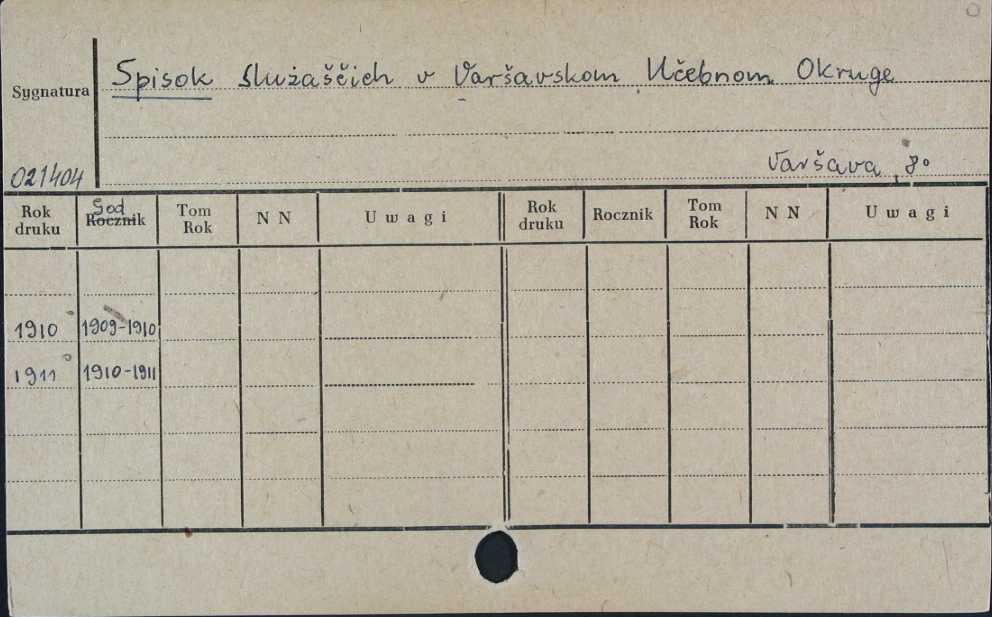 Sygnatura
Spisok služaščich v Varšavskom Učebnom Okruge
Varšava, 8°
021404
Rok druku God Rocznik Tom Rok NN Uwagi Rok druku Rocznik Tom Rok NN Uwagi
1910 1909-1910
1911 1910-1911